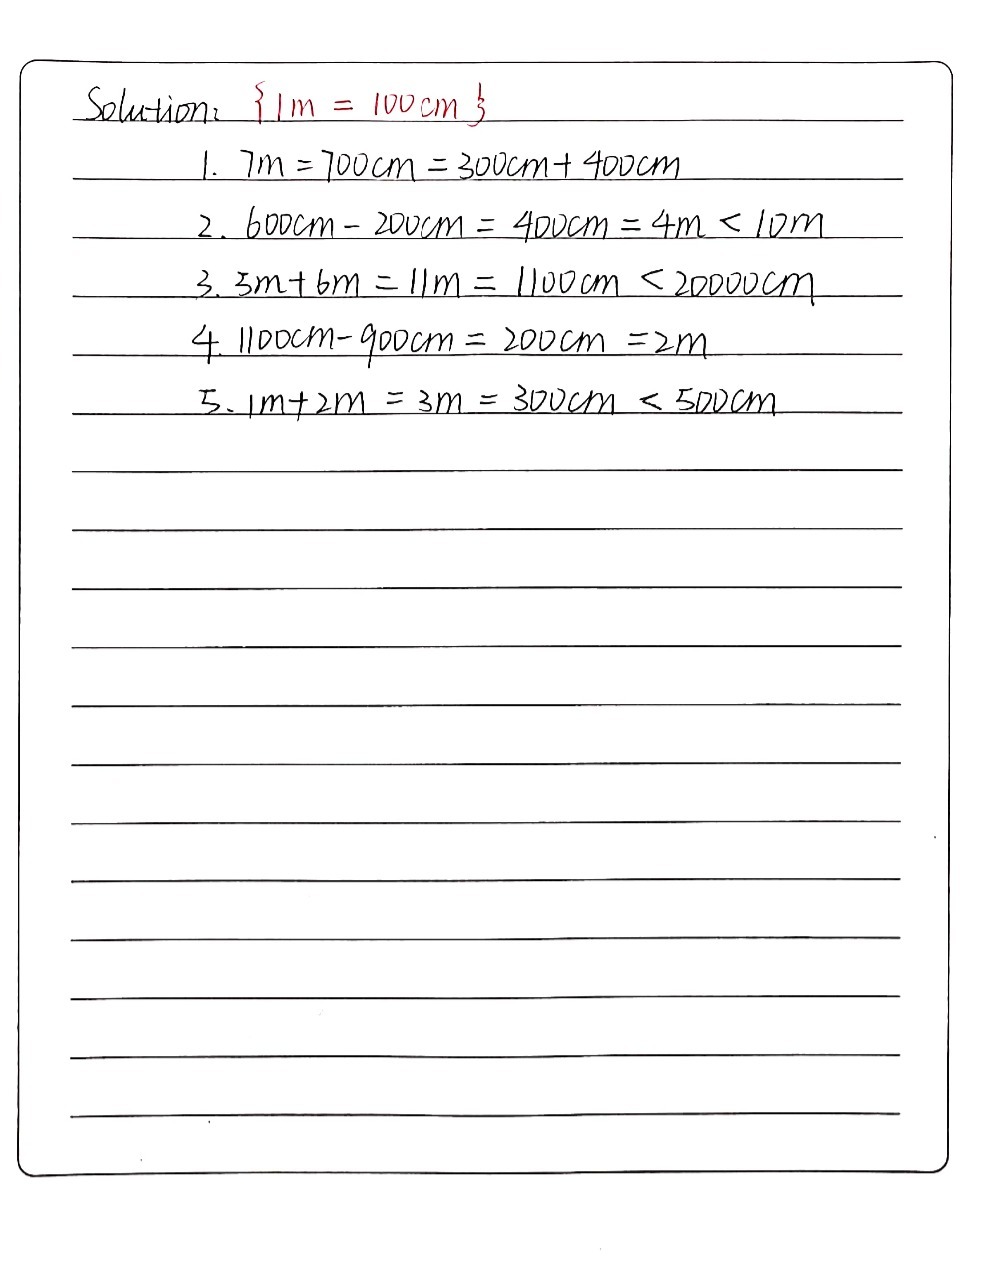 Solution: {1m = 100cm}
1. 7m = 700cm = 300cm + 400cm
2. 600cm - 200cm = 400cm = 4m < 10m
3. 5m + 6m = 11m = 1100cm < 20000cm
4. 1100cm - 900cm = 200cm = 2m
5. 1m + 2m = 3m = 300cm < 500cm